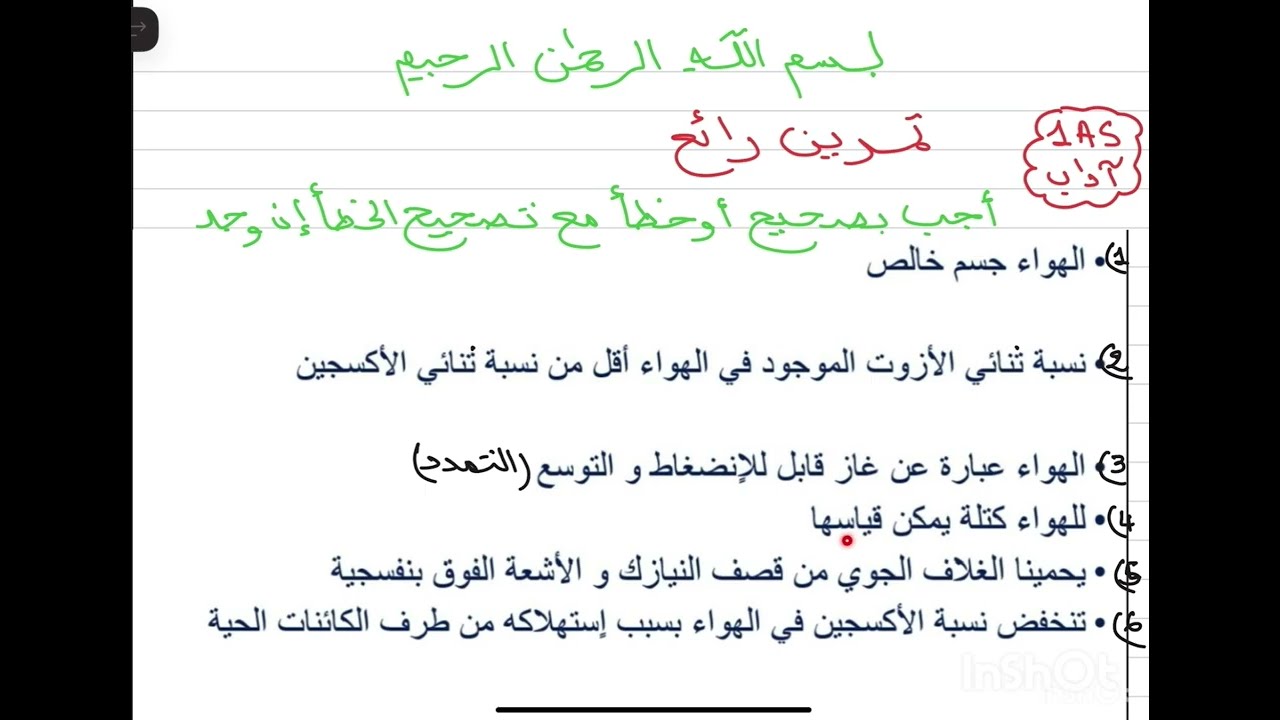 بسم الله الرحمان الرحيم
تمرين رائع
1AS
آداب
أجب بصحيح أو خطأ مع تصحيح الخطأ إن وجد
1) • الهواء جسم خالص
2) • نسبة ثنائي الأزوت الموجود في الهواء أقل من نسبة ثنائي الأكسجين
3) • الهواء عبارة عن غاز قابل للإنضغاط و التوسع (التمدد)
4) • للهواء كتلة يمكن قياسها
5) • يحمينا الغلاف الجوي من قصف النيازك و الأشعة الفوق بنفسجية
6) • تنخفض نسبة الأكسجين في الهواء بسبب إستهلاكه من طرف الكائنات الحية
InShOt